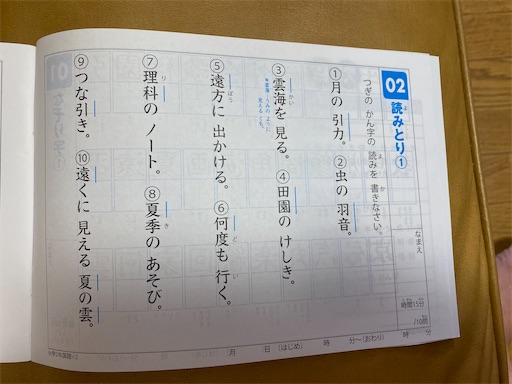 02 読みとり①
つぎの かん字の 読みを 書きなさい。
なまえ
時間15分
/10問
①月の 引力。 ②虫の 羽音。
③雲海を 見る。 ④田園の けしき。
⑤遠方に 出かける。 ⑥何度も 行く。
⑦理科の ノート。 ⑧夏季の あそび。
⑨つな引き。 ⑩遠くに 見える 夏の雲。
月 日 (はじめ) 時 分〜(おわり) 時 分